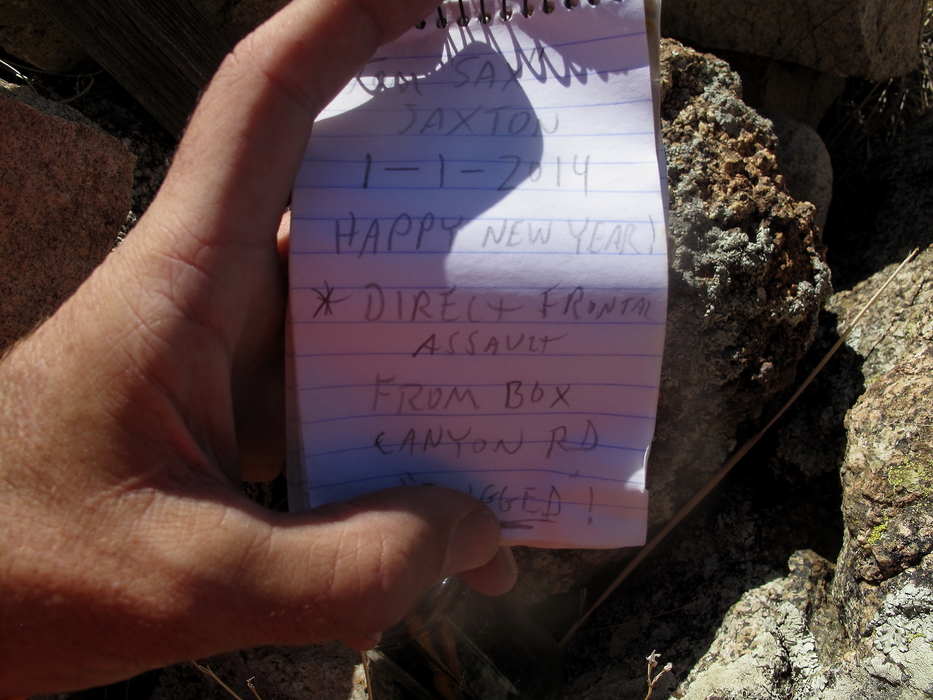 SAXTON
1-1-2014
HAPPY NEW YEAR!
* DIRECT FRONTAL
ASSAULT
FROM BOX
CANYON RD
!